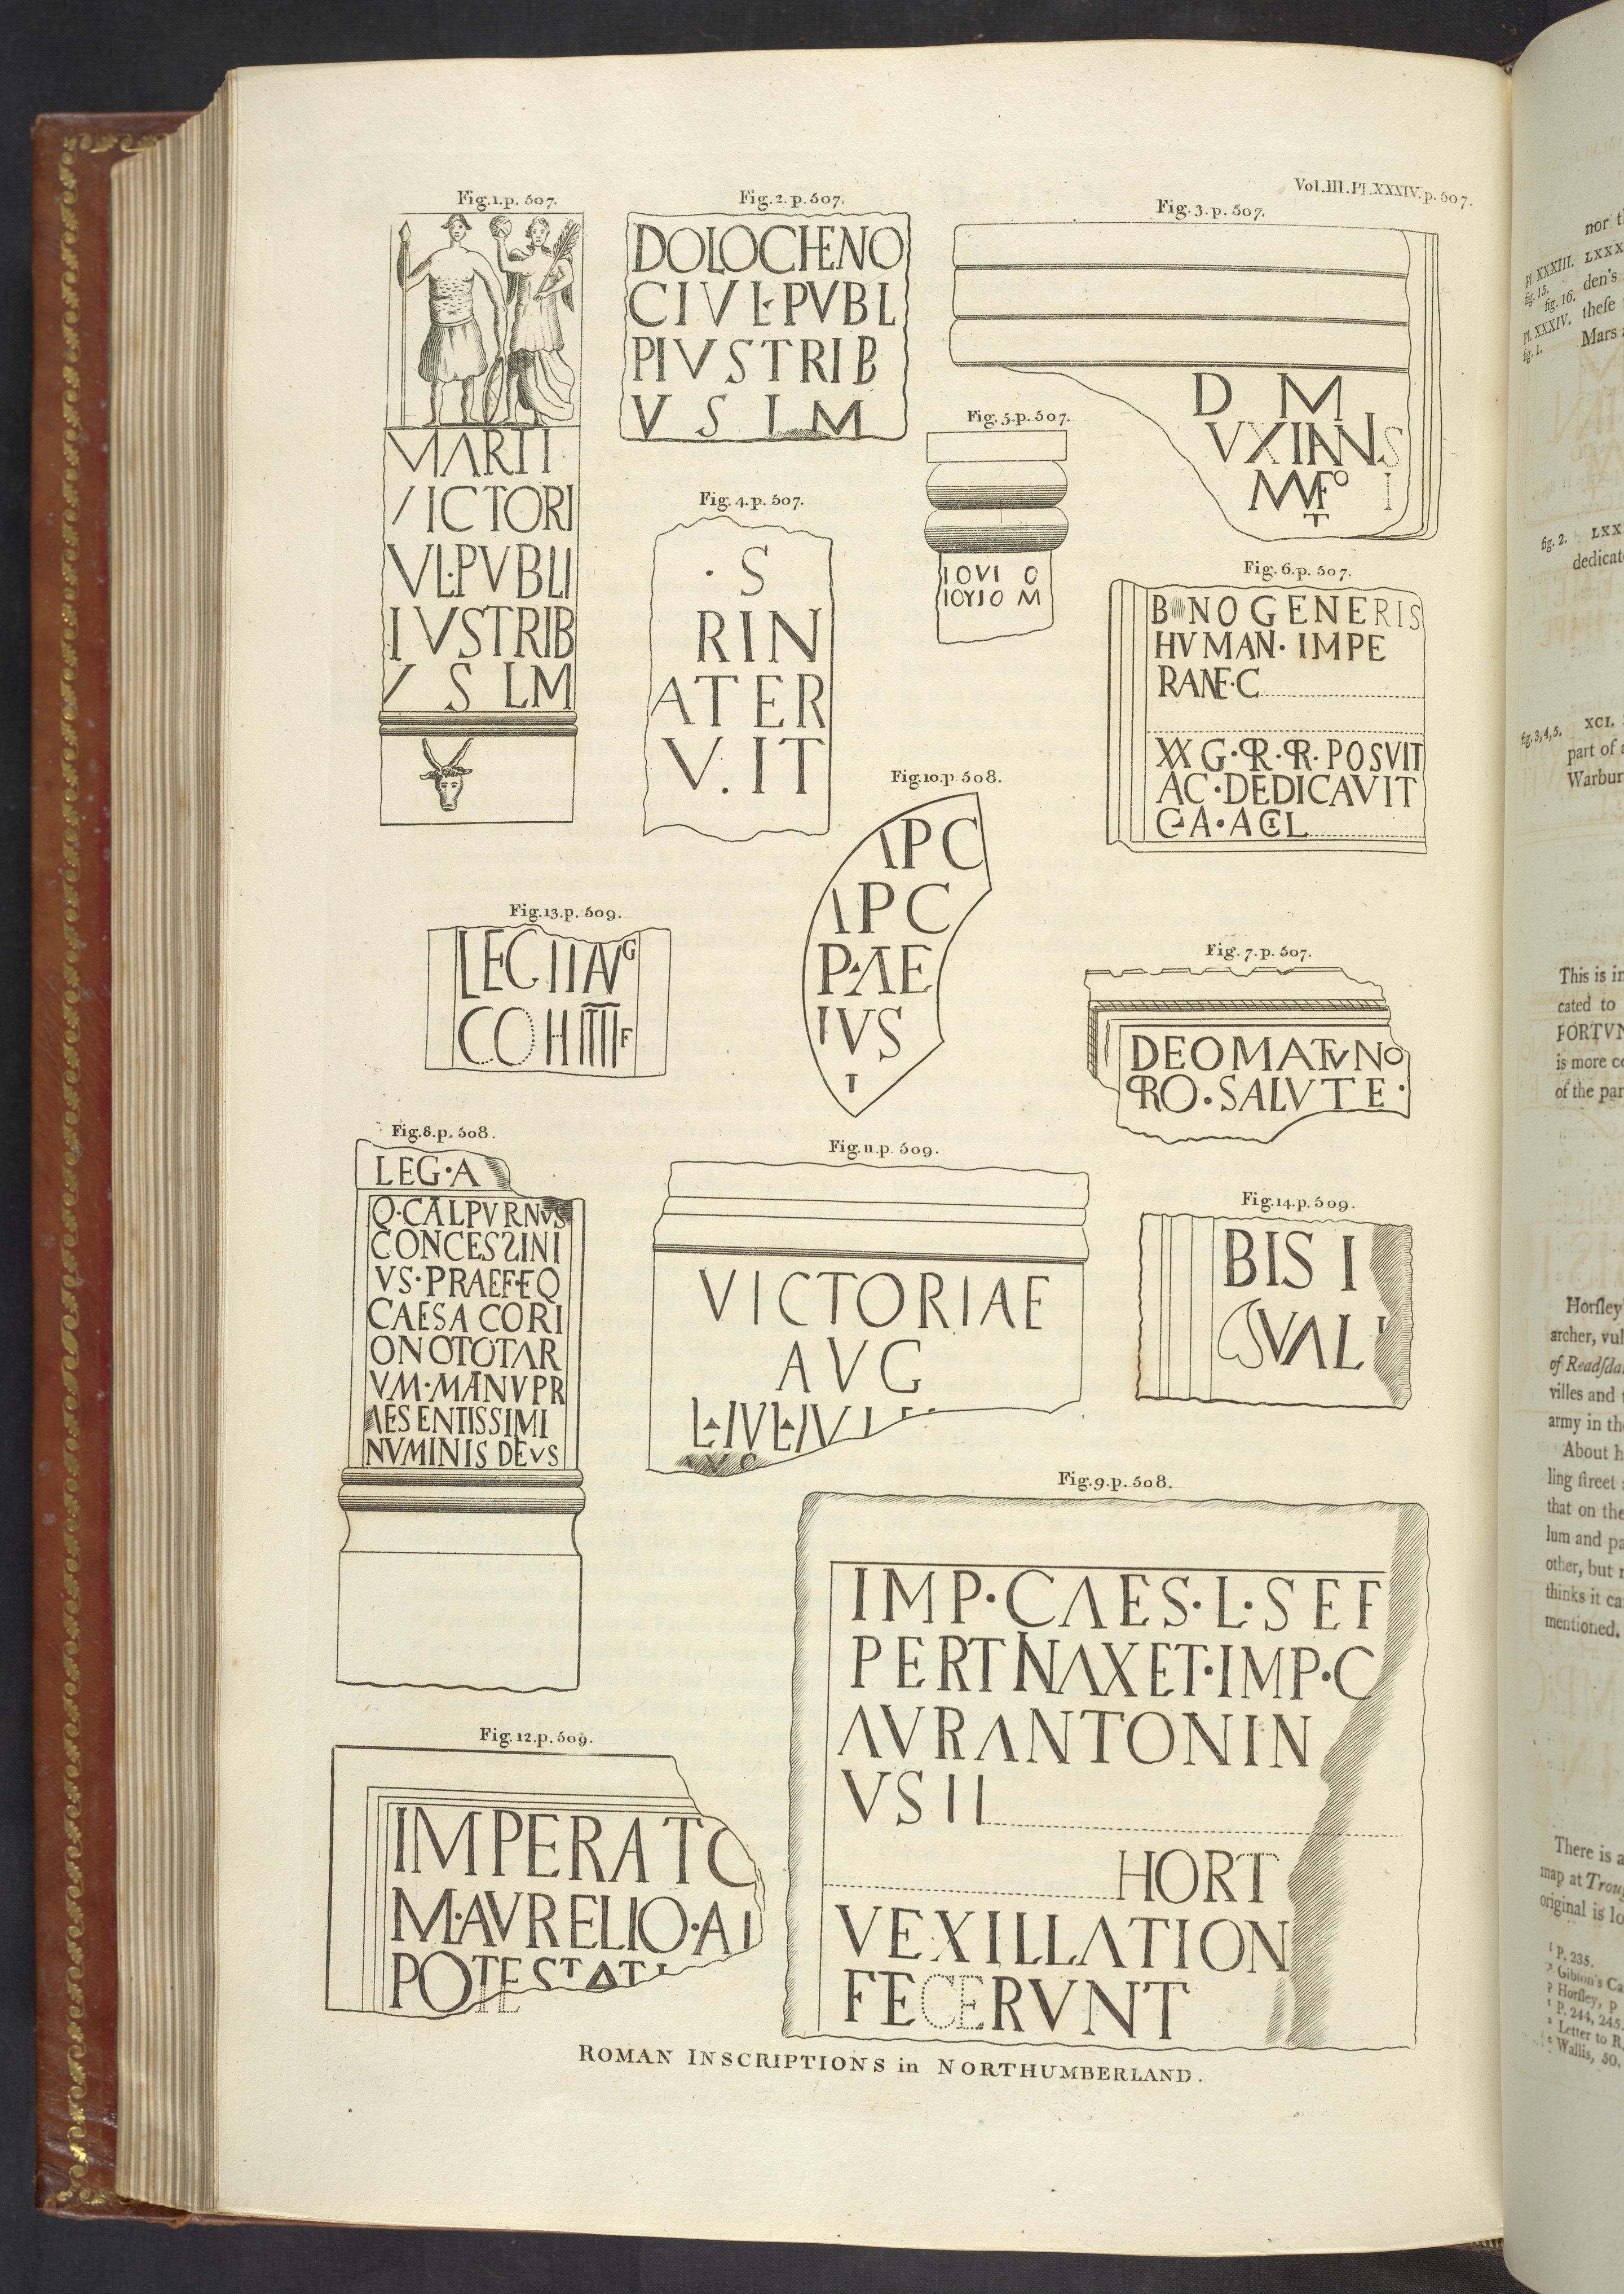 Vol.III.Pl.XXXIV.p.507.
Fig.1.p.507.
MARTI
VICTORI
VL·PVBLI
IVSTRIB
V S LM
Fig.2.p.507.
DOLOCHENO
CIVL·PVBL
PIVSTRIB
V S L M
Fig.3.p.507.
D M
VXIANS
Fig.4.p.507.
· S
RIN
ATER
V.IT
Fig.5.p.507.
IOVI O
IOVIO M
Fig.6.p.507.
B NO GENERIS
HVMAN· IMPE
RANE·C
POSVIT
AC·DEDICAVIT
Fig.10.p.508.
APC
APC
P·AE
IVS
T
Fig.13.p.509.
LEG II AVG
COH IIII F
Fig.7.p.507.
DEO MATVNO
PRO·SALVTE·
Fig.8.p.508.
LEG·A
Q·CALPVRNVS
CONCESSINI
VS·PRAEF·EQ
CAESA CORI
ONOTOTAR
VM·MANVPR
AESENTISSIMI
NVMINIS DEVS
Fig.11.p.509.
VICTORIAE
AVG
L·IVL·IVL
Fig.14.p.509.
BIS I
VAL
Fig.9.p.508.
IMP·CAES·L·SEF
PERTNAXET·IMP·C
AVRANTONIN
VSII
HORT
VEXILLATION
FECERVNT
Fig.12.p.509.
IMPERATO
M·AVRELIO·A
POTESTAT
ROMAN INSCRIPTIONS in NORTHUMBERLAND.
nor t
Pl. XXXIII. LXXX
fig. 15. den's
fig. 16.
Pl. XXXIV. these
fig. 1. Mars
fig. 2. LXX
dedicat
fig. 3,4,5. XCI.
part of a
Warbur
This is in
cated to
FORTVN
is more co
of the par
Horsley
archer, vul
of Readsda
villes and
army in the
About h
ling street
that on the
lum and pa
other, but
thinks it ca
mentioned.
There is a
map at Troug
original is lo
P. 235.
Gibson's Ca
Horsley, p
P. 244, 245.
Letter to R.
Wallis, 50.